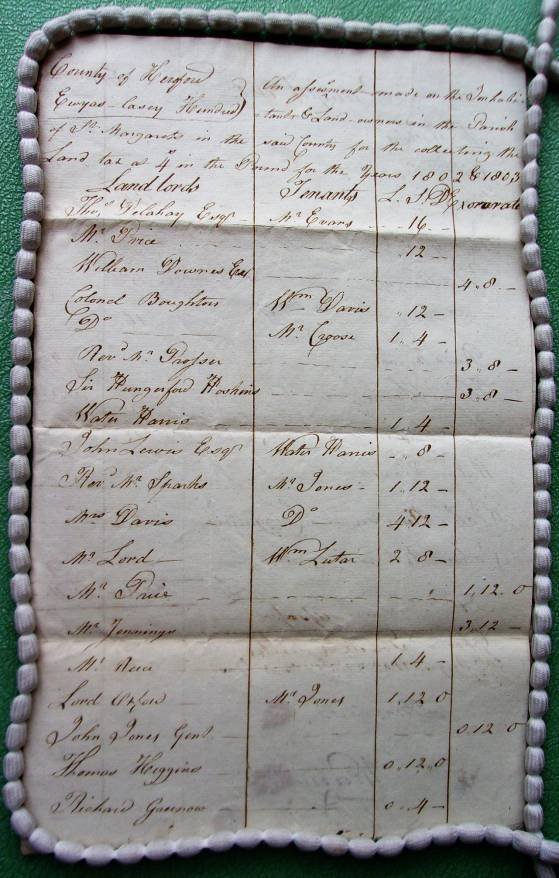 County of Hereford
Ewyas-Lasey Hundred } An assessment made on the Inhabi-
tants & Land-owners in the Parish
of St. Margarets in the said County for the collecting the
Land tax at 4s in the Pound for the Years 1802 & 1803
Landlords Tenants L. S. D. Exonerated
Thos. Delahay Esqr. Mr. Evans - 16 -
Mr. Price - 12 -
William Downes Esqr 4 . 8 . -
Colonel Boughton Wm Davis - 12 -
Do. Mr. Croose 1 . 4 -
Revd. Mr. Prosser 3 . 8 -
Sir Hungerford Hoskins 3 . 8 -
Water Harris 1 . 4 -
John Lewis Esqr Water Harris - . 8 -
Revd. Mr. Sparks Mr. Jones - 1 . 12 -
Mrs Davis Do 4 12 -
Mr. Lord Wm 2 8 -
Mr. Price 1 . 12 . 0
Mr. Jennings 3 . 12 -
Mr. 1 . 4 -
Lord Oxford Mr. Jones 1 . 12 0
John Jones Gent 0 . 12 0
Thomas Higgins 0 . 12 . 0
Richard 0 . 4 -